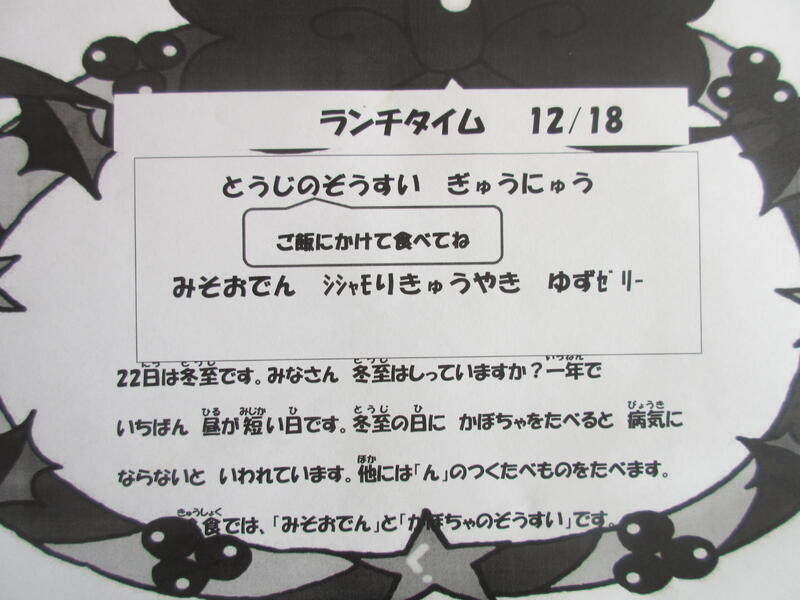 ランチタイム 12/18
とうじのぞうすい ぎゅうにゅう
ご飯にかけて食べてね
みそおでん ｼｼｬﾓりきゅうやき ゆずｾﾞﾘｰ
22日は冬至です。みなさん 冬至はしっていますか？一年で
いちばん 昼が短い日です。冬至の日に かぼちゃをたべると 病気に
ならないと いわれています。他には「ん」のつくたべものをたべます。
食では、「みそおでん」と「かぼちゃのぞうすい」です。